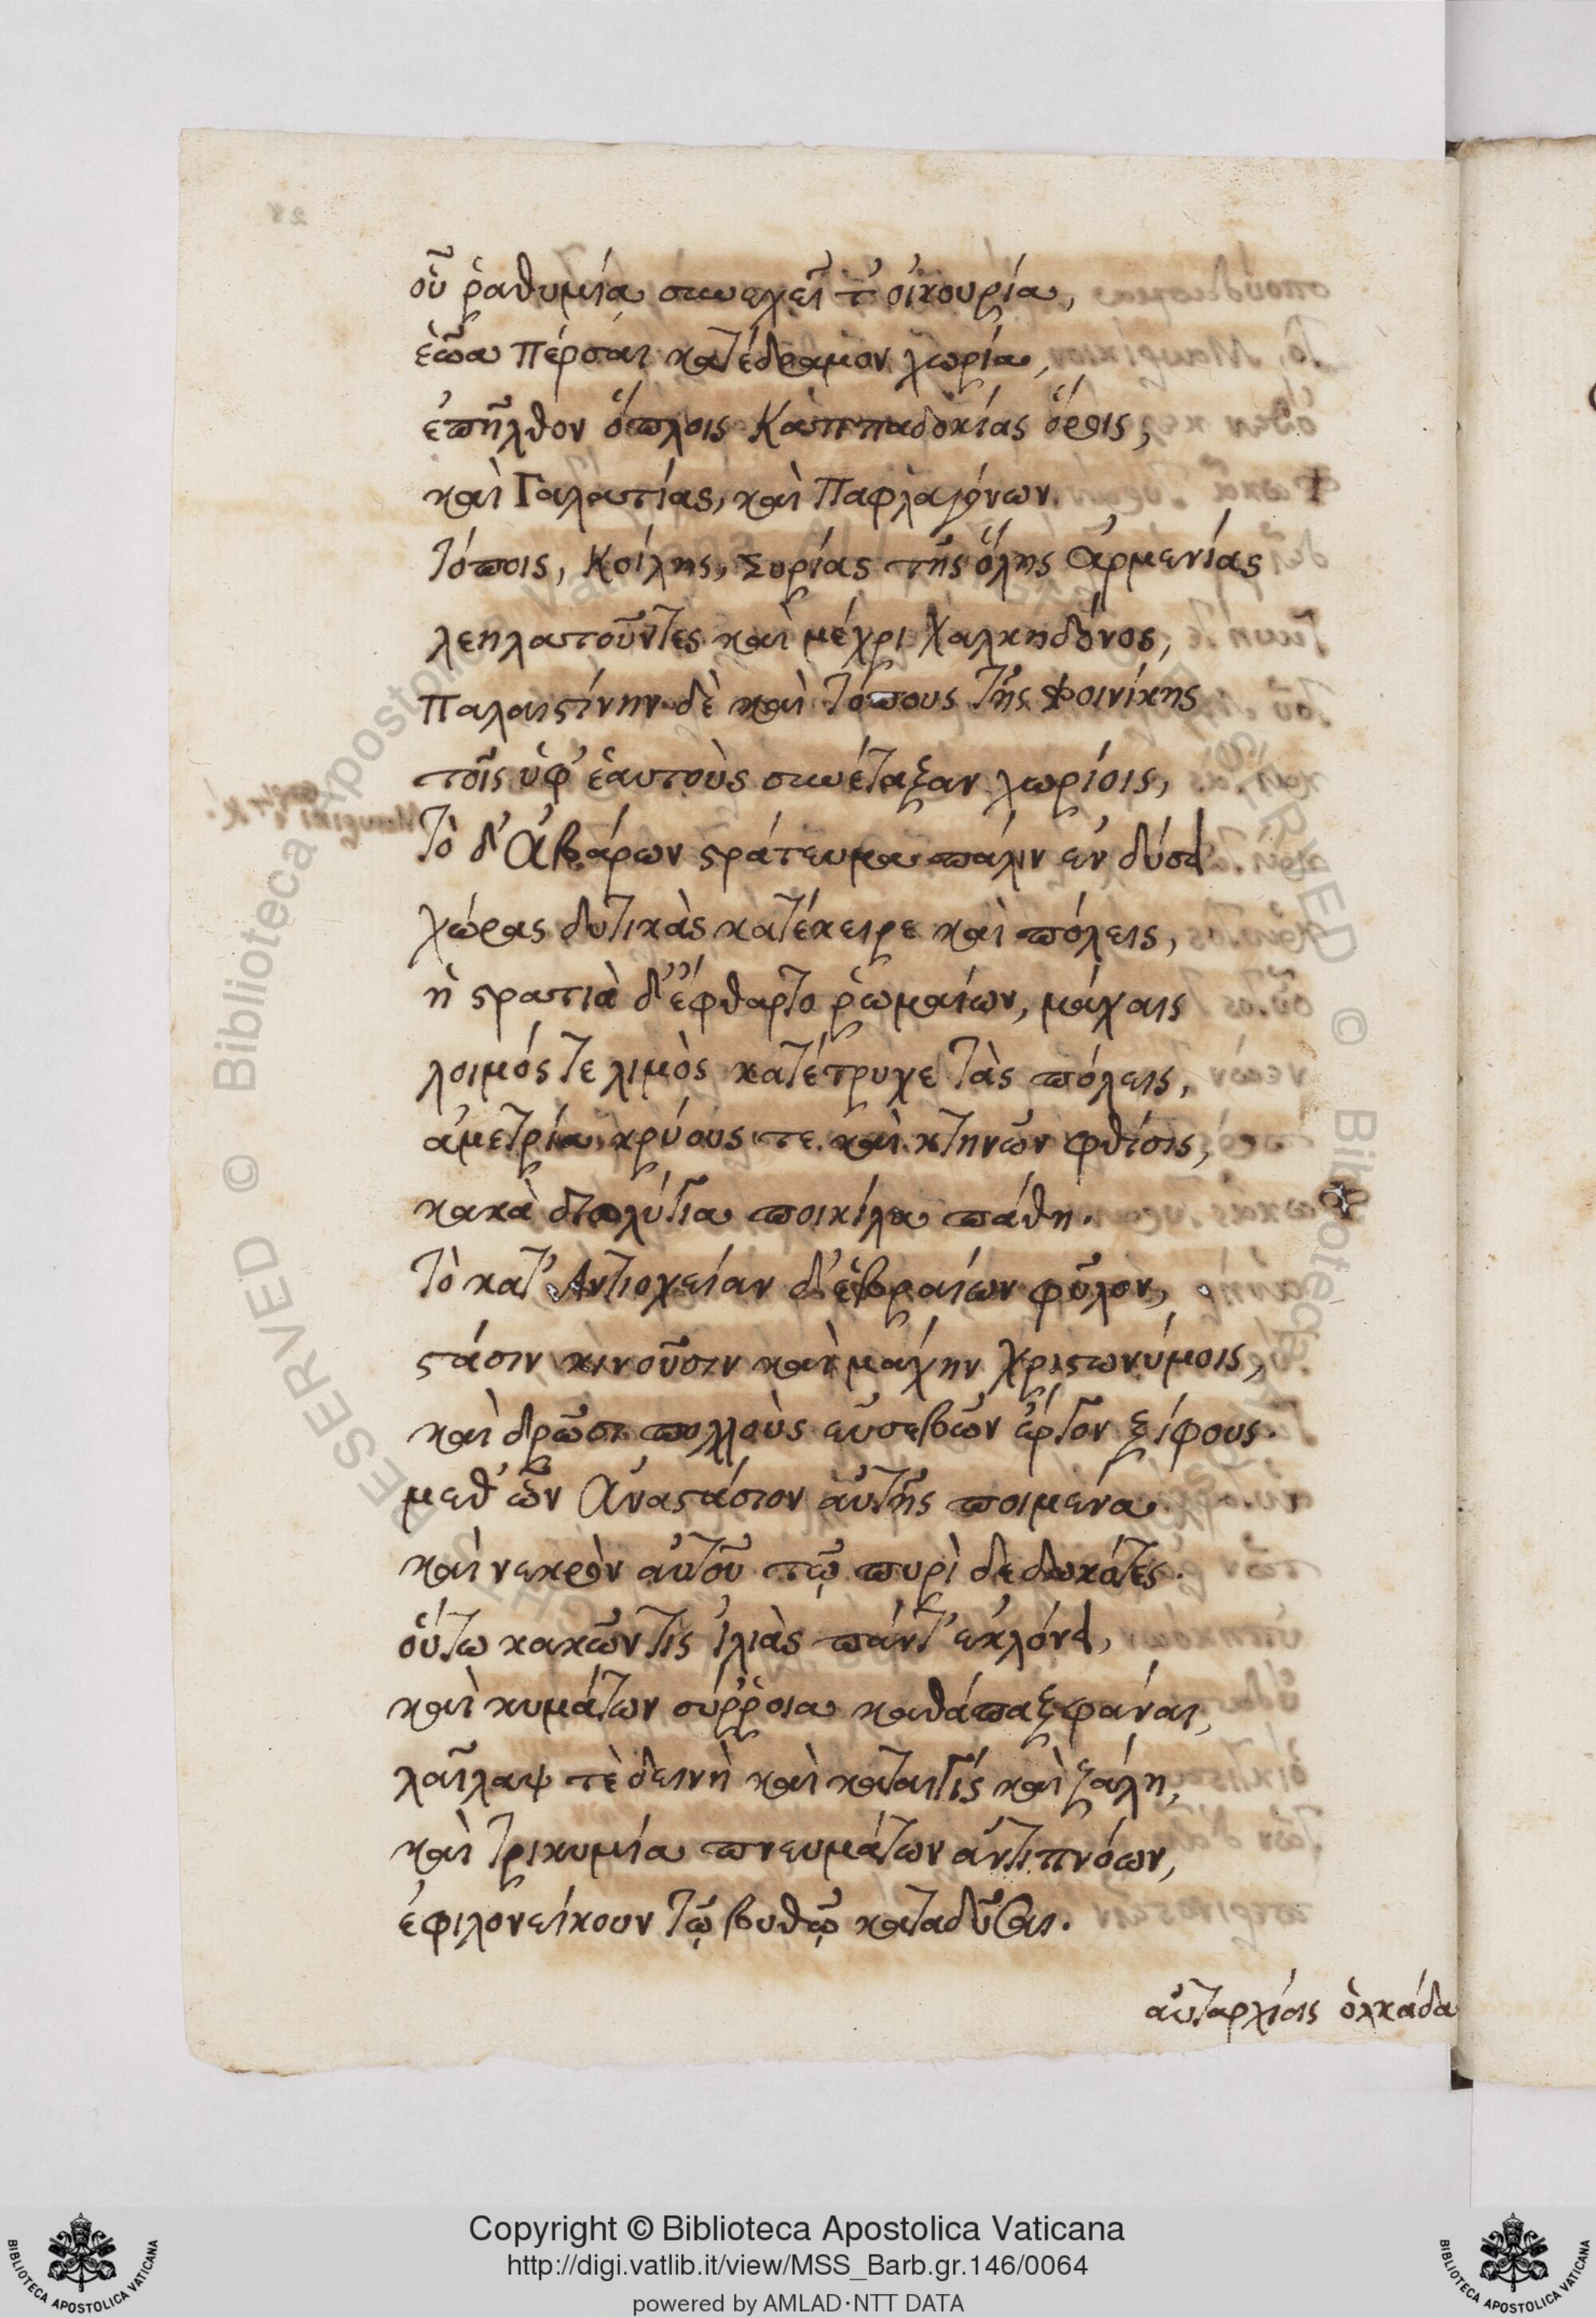 οὗ ῥαθυμία συνεχεῖ τ' οἰκουρία,
ἑῷα Πέρσαι κατέδραμον χωρία,
ἐπῆλθον ὅπλοις Καππαδοκίας ὅροις,
καὶ Γαλατίας, καὶ Παφλαγόνων
τόποις, Κοίλης, Συρίας τῆς ὅλης Ἀρμενίας
λεηλατοῦντες καὶ μέχρι Χαλκηδόνος,
Παλαιστίνην δὲ καὶ τόπους τῆς Φοινίκης
τοῖς ὑφ' ἑαυτοὺς συνέταξαν χωρίοις,
Τὸ δ' Ἀβάρων στράτευμα πάλιν ἐν δύσει
χώρας δυτικὰς κατέκειρε καὶ πόλεις,
ἡ στρατιὰ δ' ἔφθαρτο ῥωμαίων, μάχαις
λοιμός τε λιμὸς κατέτρυχε τὰς πόλεις,
ἀμετρία κρύους τε καὶ κτηνῶν φθίσις,
κακὰ διωλύγια ποικίλα πάθη.
Τὸ κατ' Ἀντιοχείαν δ' ἑβραίων φῦλον,
στάσιν κινοῦσιν καὶ μάχην χριστωνύμοις,
καὶ δρῶσι πολλοὺς εὐσεβῶν ἔργον ξίφους.
μεθ' ὧν Ἀναστάσιον αὐτῆς ποιμένα
καὶ νεκρὸν αὐτοῦ τῷ πυρὶ δεδωκότες.
οὕτω κακῶν τις ἰλιὰς πάντ' ἐκλόνει,
καὶ κυμάτων σύῤῥοια καθάπαξ φάναι,
λαῖλαψ τὲ δεινὴ καὶ καταιγίς καὶ ζάλη,
καὶ τρικυμία πνευμάτων ἀντιπνόων,
ἐφιλονείκουν τῷ βυθῷ καταδῦσαι.
αὐταρχίας ὁλκάδα
Copyright © Biblioteca Apostolica Vaticana
http://digi.vatlib.it/view/MSS_Barb.gr.146/0064
powered by AMLAD·NTT DATA
BIBLIOTECA APOSTOLICA VATICANA
BIBLIOTECA APOSTOLICA VATICANA